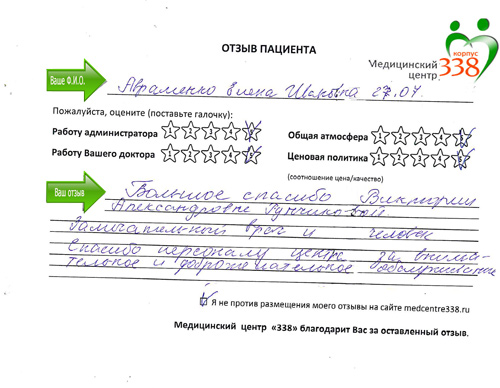 ОТЗЫВ ПАЦИЕНТА
корпус
Медицинский 338
центр
Ваше Ф.И.О. Авраменко Елена Ивановна 27.04.
Пожалуйста, оцените (поставьте галочку):
Работу администратора 1 2 3 4 5 Общая атмосфера 1 2 3 4 5
Работу Вашего доктора 1 2 3 4 5 Ценовая политика 1 2 3 4 5
(соотношение цена/качество)
Ваш отзыв Большое спасибо Виктории
Александровне
Замечательный врач и человек
Спасибо персоналу центра за внима-
тельное и доброжелательное обслуживание
Я не против размещения моего отзывы на сайте medcentre338.ru
Медицинский центр «338» благодарит Вас за оставленный отзыв.